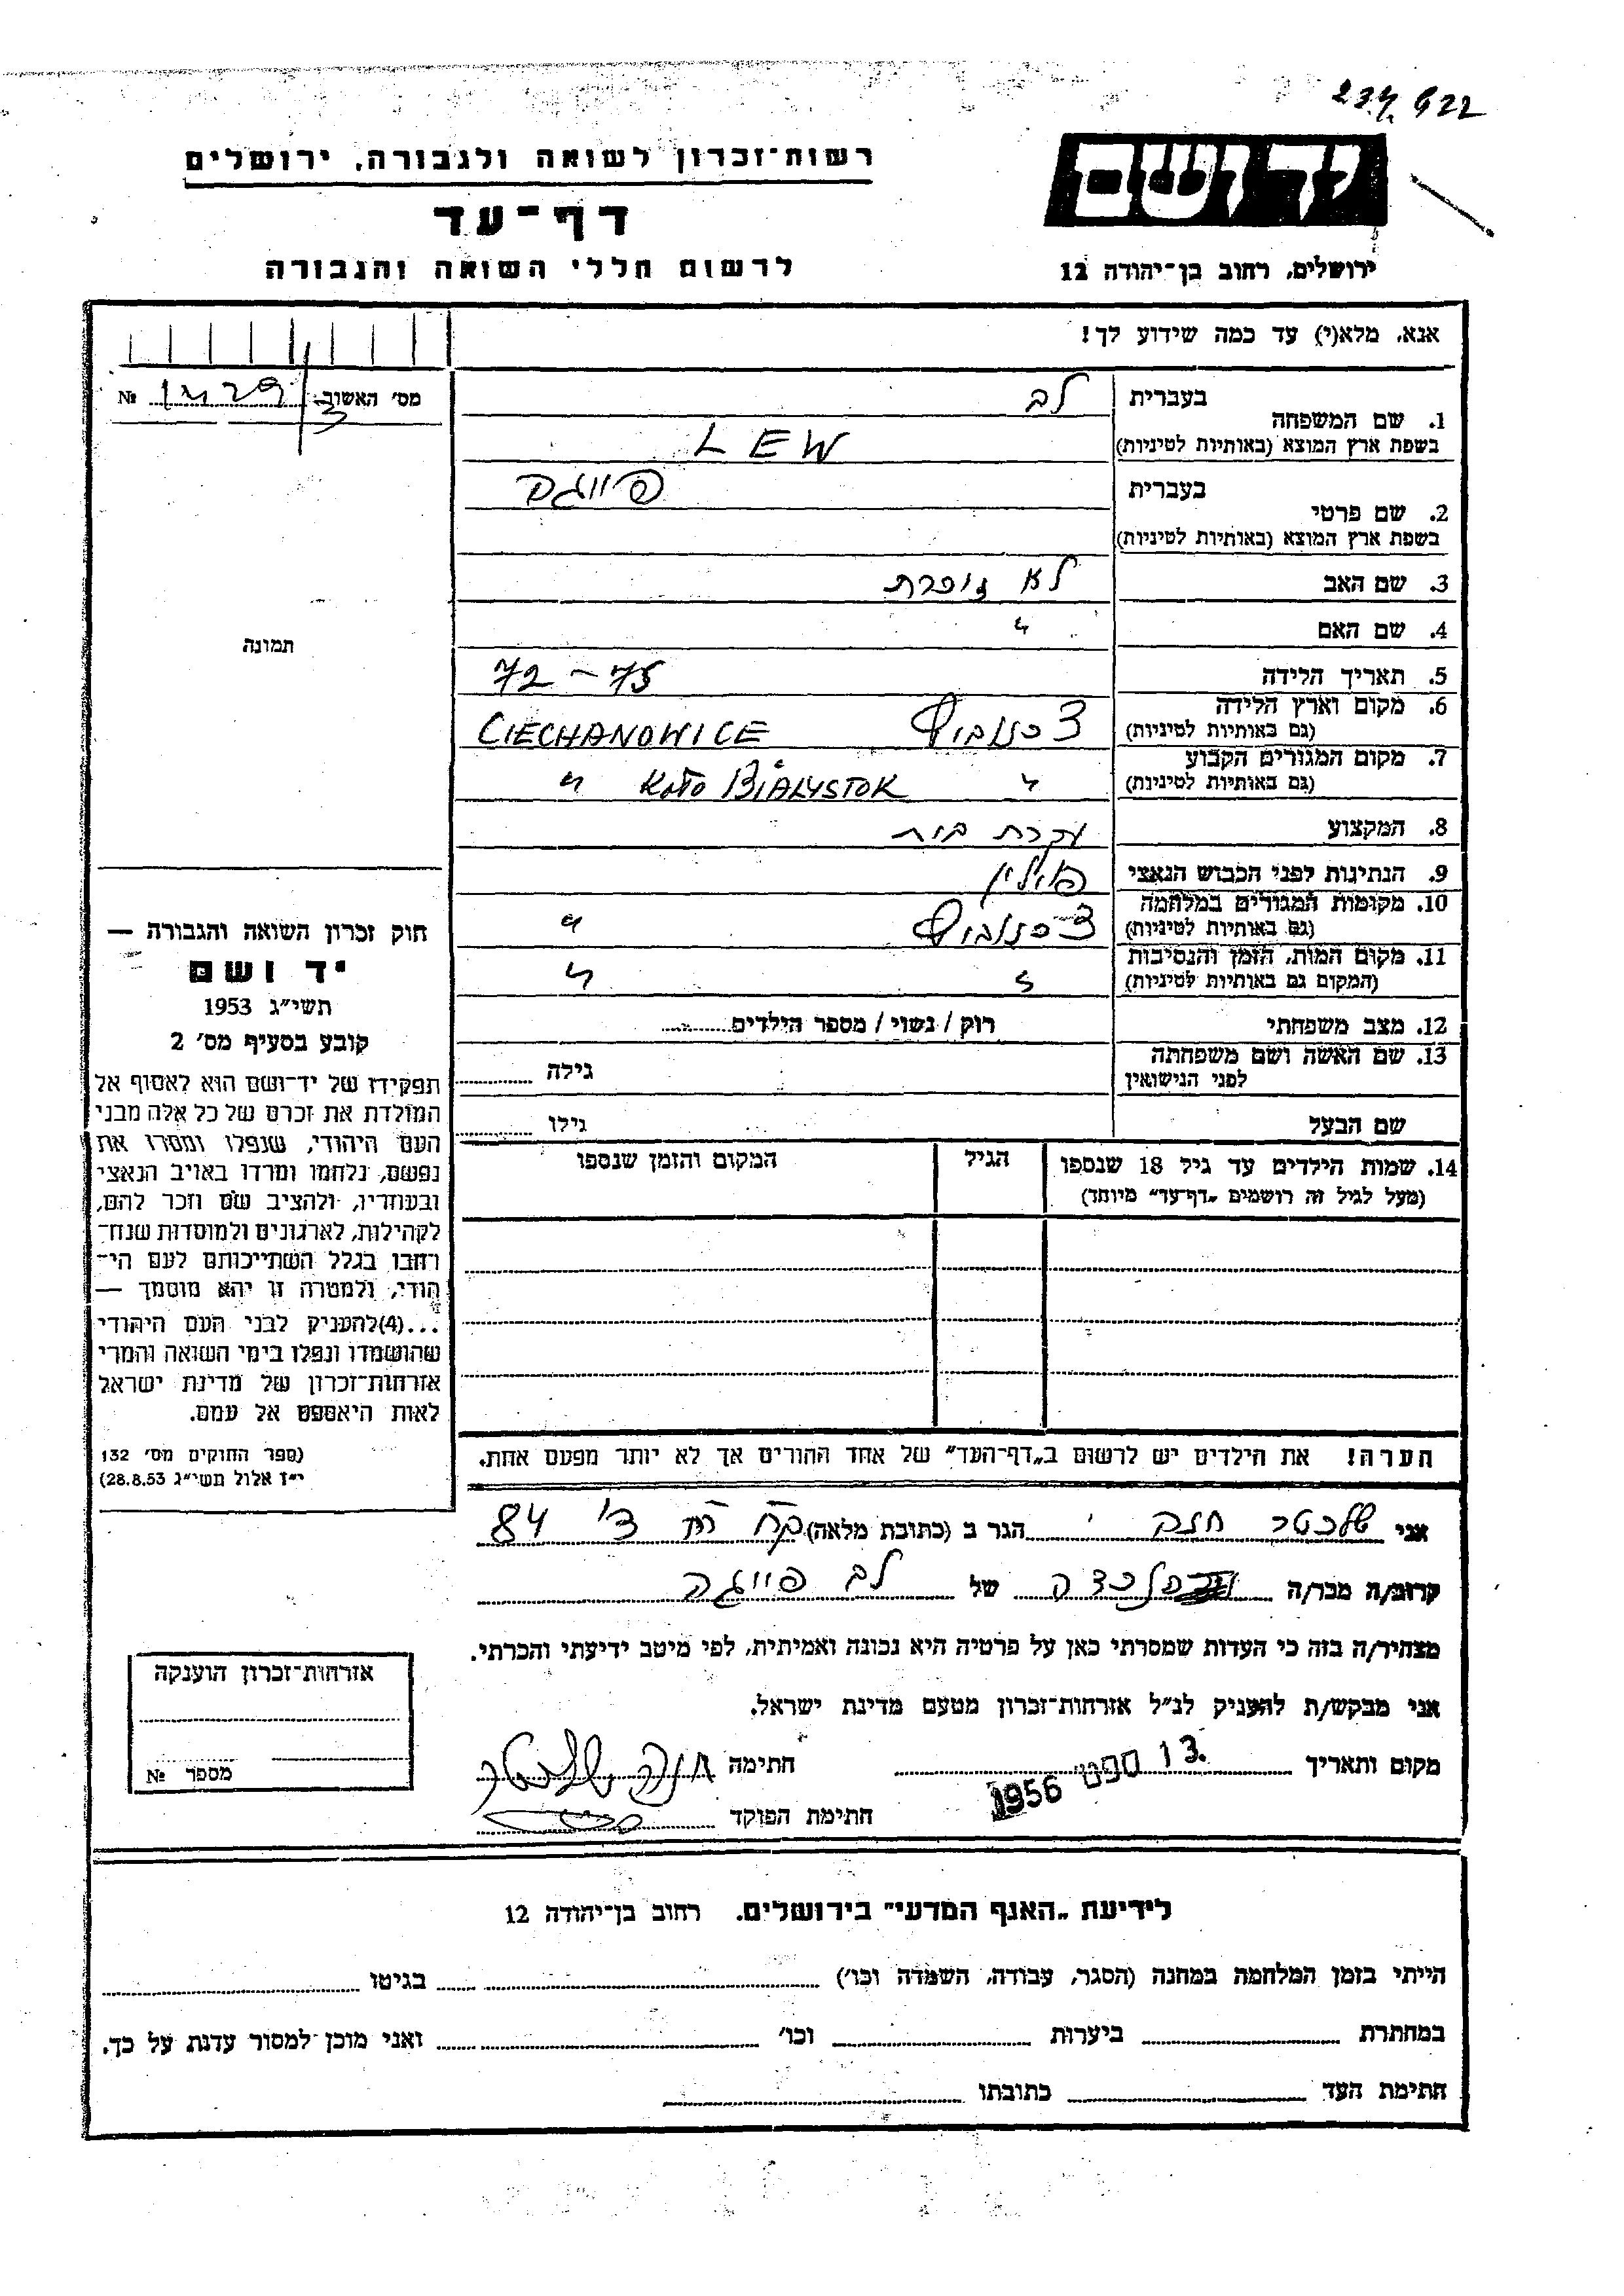 רשות־זכרון לשואה ולגבורה, ירושלים
יד ושם
דף־עד
לרשום חללי השואה והגבורה
ירושלים, רחוב בן־יהודה 12
אנא, מלא(י) עד כמה שידוע לך!
מס׳ האשוב №
1. שם המשפחה
בעברית לב
בשפת ארץ המוצא (באותיות לטיניות) LEW
2. שם פרטי
בעברית פייגה
בשפת ארץ המוצא (באותיות לטיניות)
3. שם האב לא זוכרת
4. שם האם "
5. תאריך הלידה 72 – 75
6. מקום וארץ הלידה CIECHANOWICE
(גם באותיות לטיניות)
7. מקום המגורים הקבוע " BIALYSTOK "
(גם באותיות לטיניות)
8. המקצוע עקרת בית
9. הנתינות לפני הכבוש הנאצי פולין
10. מקומות המגורים במלחמה "
(גם באותיות לטיניות)
11. מקום המות, הזמן והנסיבות " "
(המקום גם באותיות לטיניות)
12. מצב משפחתי רוק / נשוי / מספר הילדים
13. שם האשה ושם משפחתה גילה
לפני הנישואין
שם הבעל גילו
14. שמות הילדים עד גיל 18 שנספו הגיל המקום והזמן שנספו
(מעל לגיל זה רושמים „דף־עד" מיוחד)
תמונה
חוק זכרון השואה והגבורה —
יד ושם
תשי"ג 1953
קובע בסעיף מס׳ 2
תפקידו של יד־ושם הוא לאסוף אל
המולדת את זכרם של כל אלה מבני
העם היהודי, שנפלו ומסרו את
נפשם, נלחמו ומרדו באויב הנאצי
ובעוזריו, ולהציב שם וזכר להם,
לקהילות, לארגונים ולמוסדות שנח־
רחבו בגלל השתייכותם לעם הי־
הודי, ולמטרה זו יהא מוסמך —
...(4)להעניק לבני העם היהודי
שהושמדו ונפלו בימי השואה והמרי
אזרחות־זכרון של מדינת ישראל
לאות היאספם אל עמם.
(ספר החוקים מס׳ 132
י"ז אלול תשי"ג 28.8.53)
הערה! את הילדים יש לרשום ב„דף־העד" של אחד ההורים אך לא יותר מפעם אחת.
אני חנה הגר ב (כתובת מלאה) 84
קרוב/ה מכר/ה של לב פייגה
מצהיר/ה בזה כי העדות שמסרתי כאן על פרטיה היא נכונה ואמיתית, לפי מיטב ידיעתי והכרתי.
אני מבקש/ת להעניק לנ"ל אזרחות־זכרון מטעם מדינת ישראל.
מקום ותאריך 13 ספט׳ 1956 חתימה
חתימת הפוקד
אזרחות־זכרון הוענקה
מספר №
לידיעת „האגף המדעי" בירושלים. רחוב בן־יהודה 12
הייתי בזמן המלחמה במחנה (הסגר, עבודה, השמדה וכו׳) בגיטו
במחתרת ביערות וכו׳ ואני מוכן למסור עדות על כך.
חתימת העד כתובתו